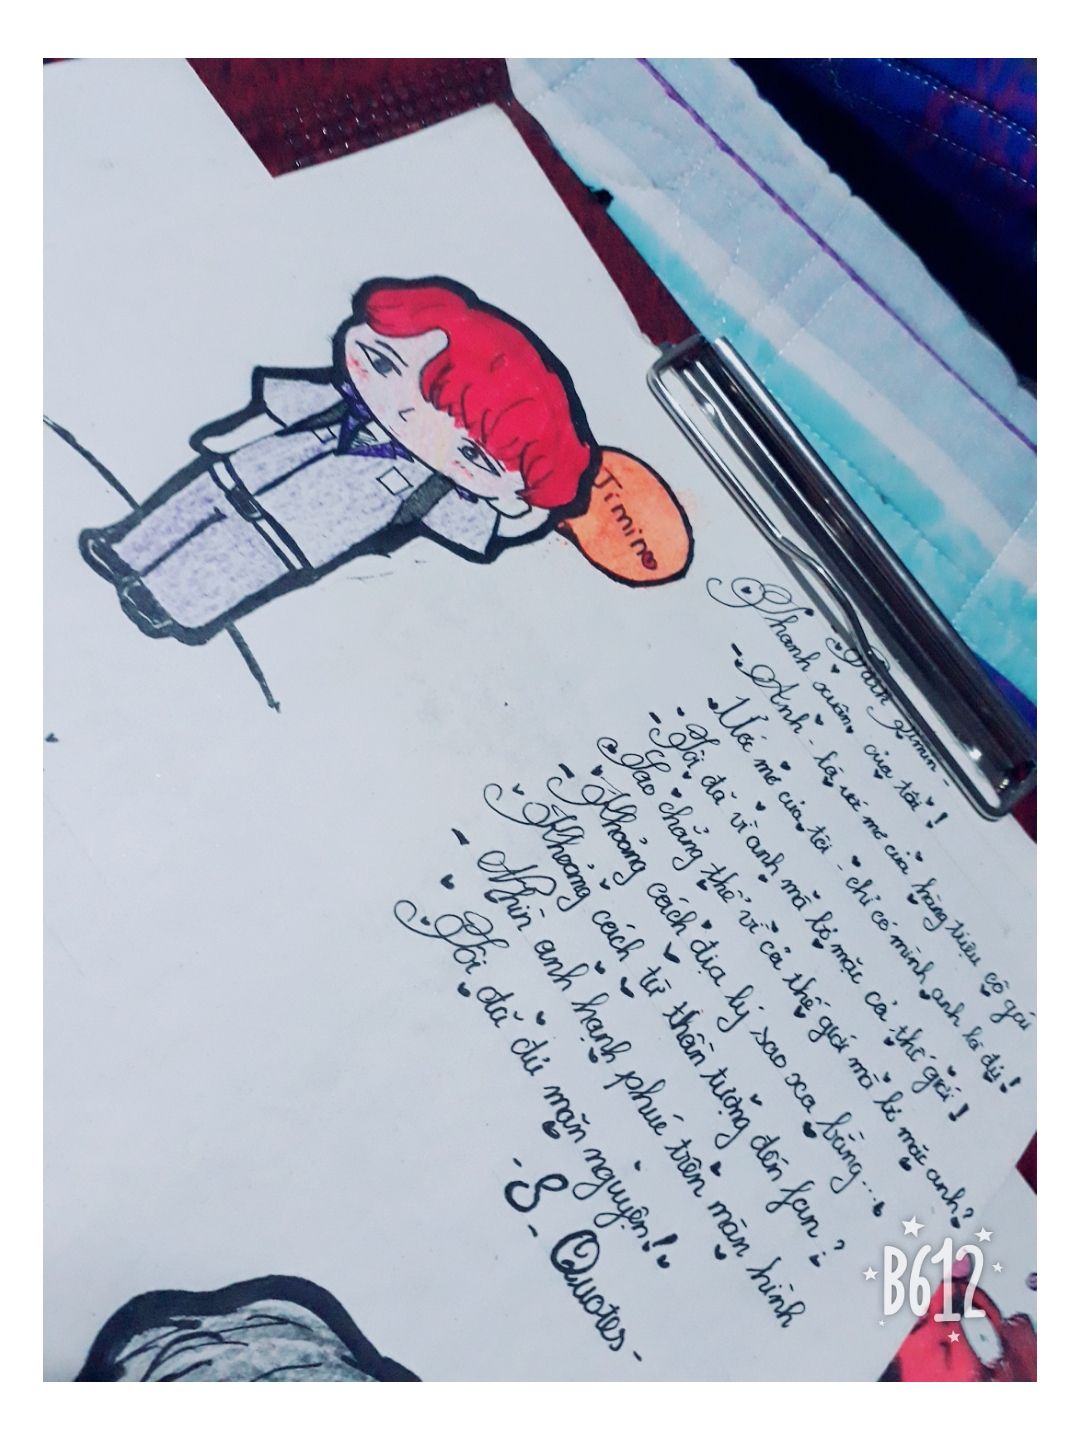 Jimin
Park Jimin -
Thanh xuân của tôi!
- Anh - là ước mơ của hàng triệu cô gái
Ước mơ của tôi - chỉ có mình anh là đủ!
- Tôi đã vì anh mà bỏ mặc cả thế giới!
Sao chẳng thể vì cả thế giới mà bỏ mặc anh?
- Khoảng cách địa lý sao xa bằng...
Khoảng cách từ thần tượng đến fan?
- Nhìn anh hạnh phúc trên màn hình
Tôi đã đủ mãn nguyện!
- S - Quotes -
B612